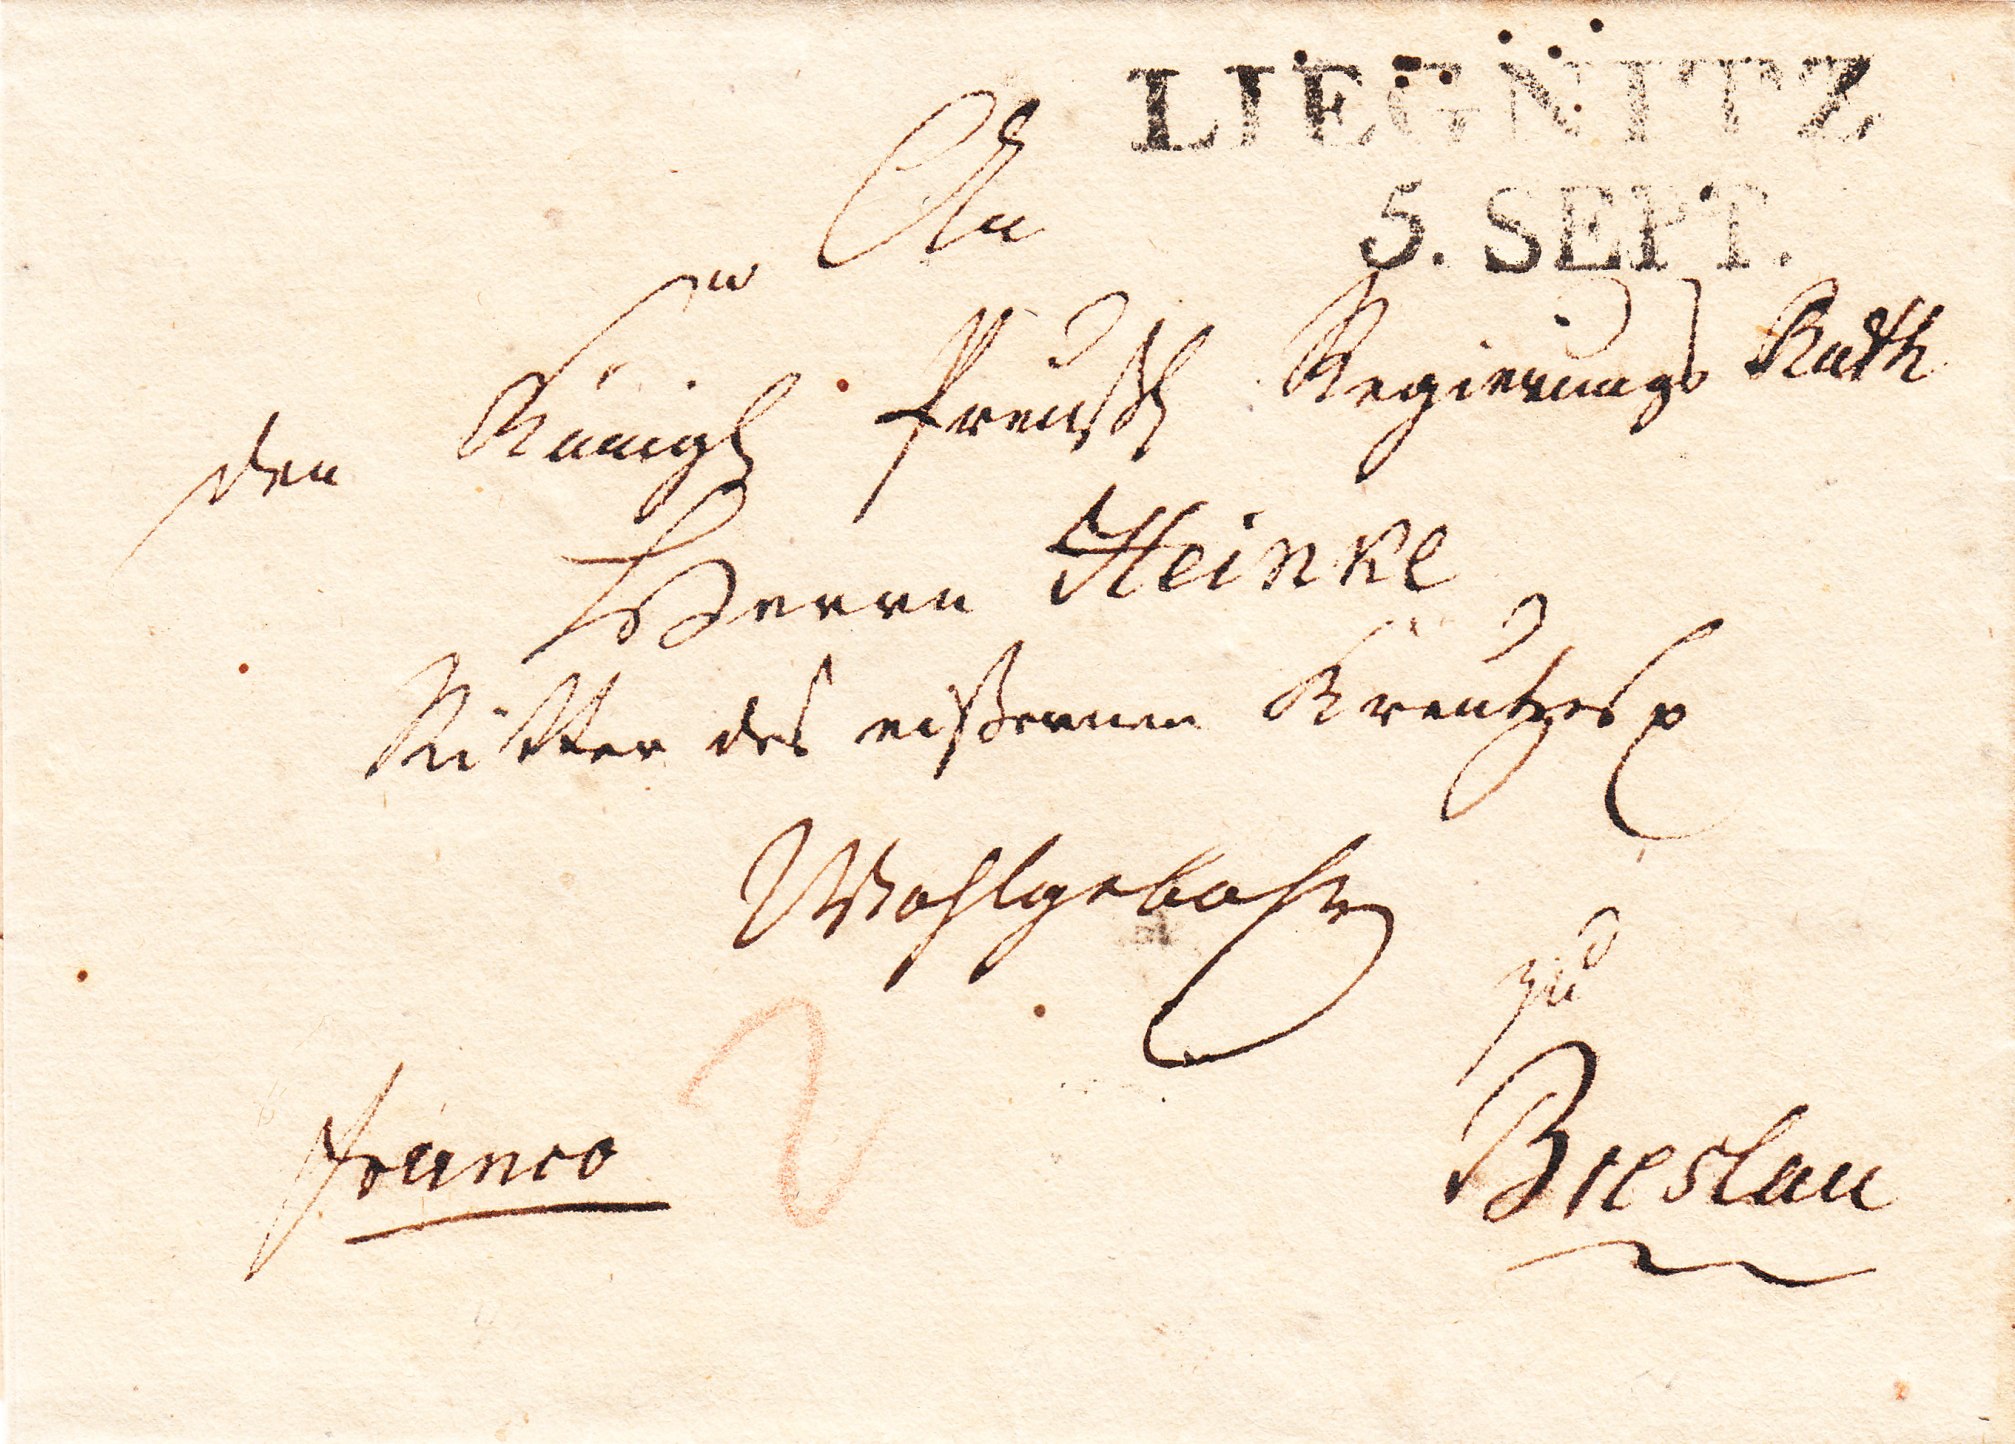 LIEGNITZ
5. SEPT.
An
den Königl Preuß Regierungs Rath
Herrn Heinke
Ritter des eißernen Kreutzes p
Wohlgebohr
zu
Breslau
franco
2